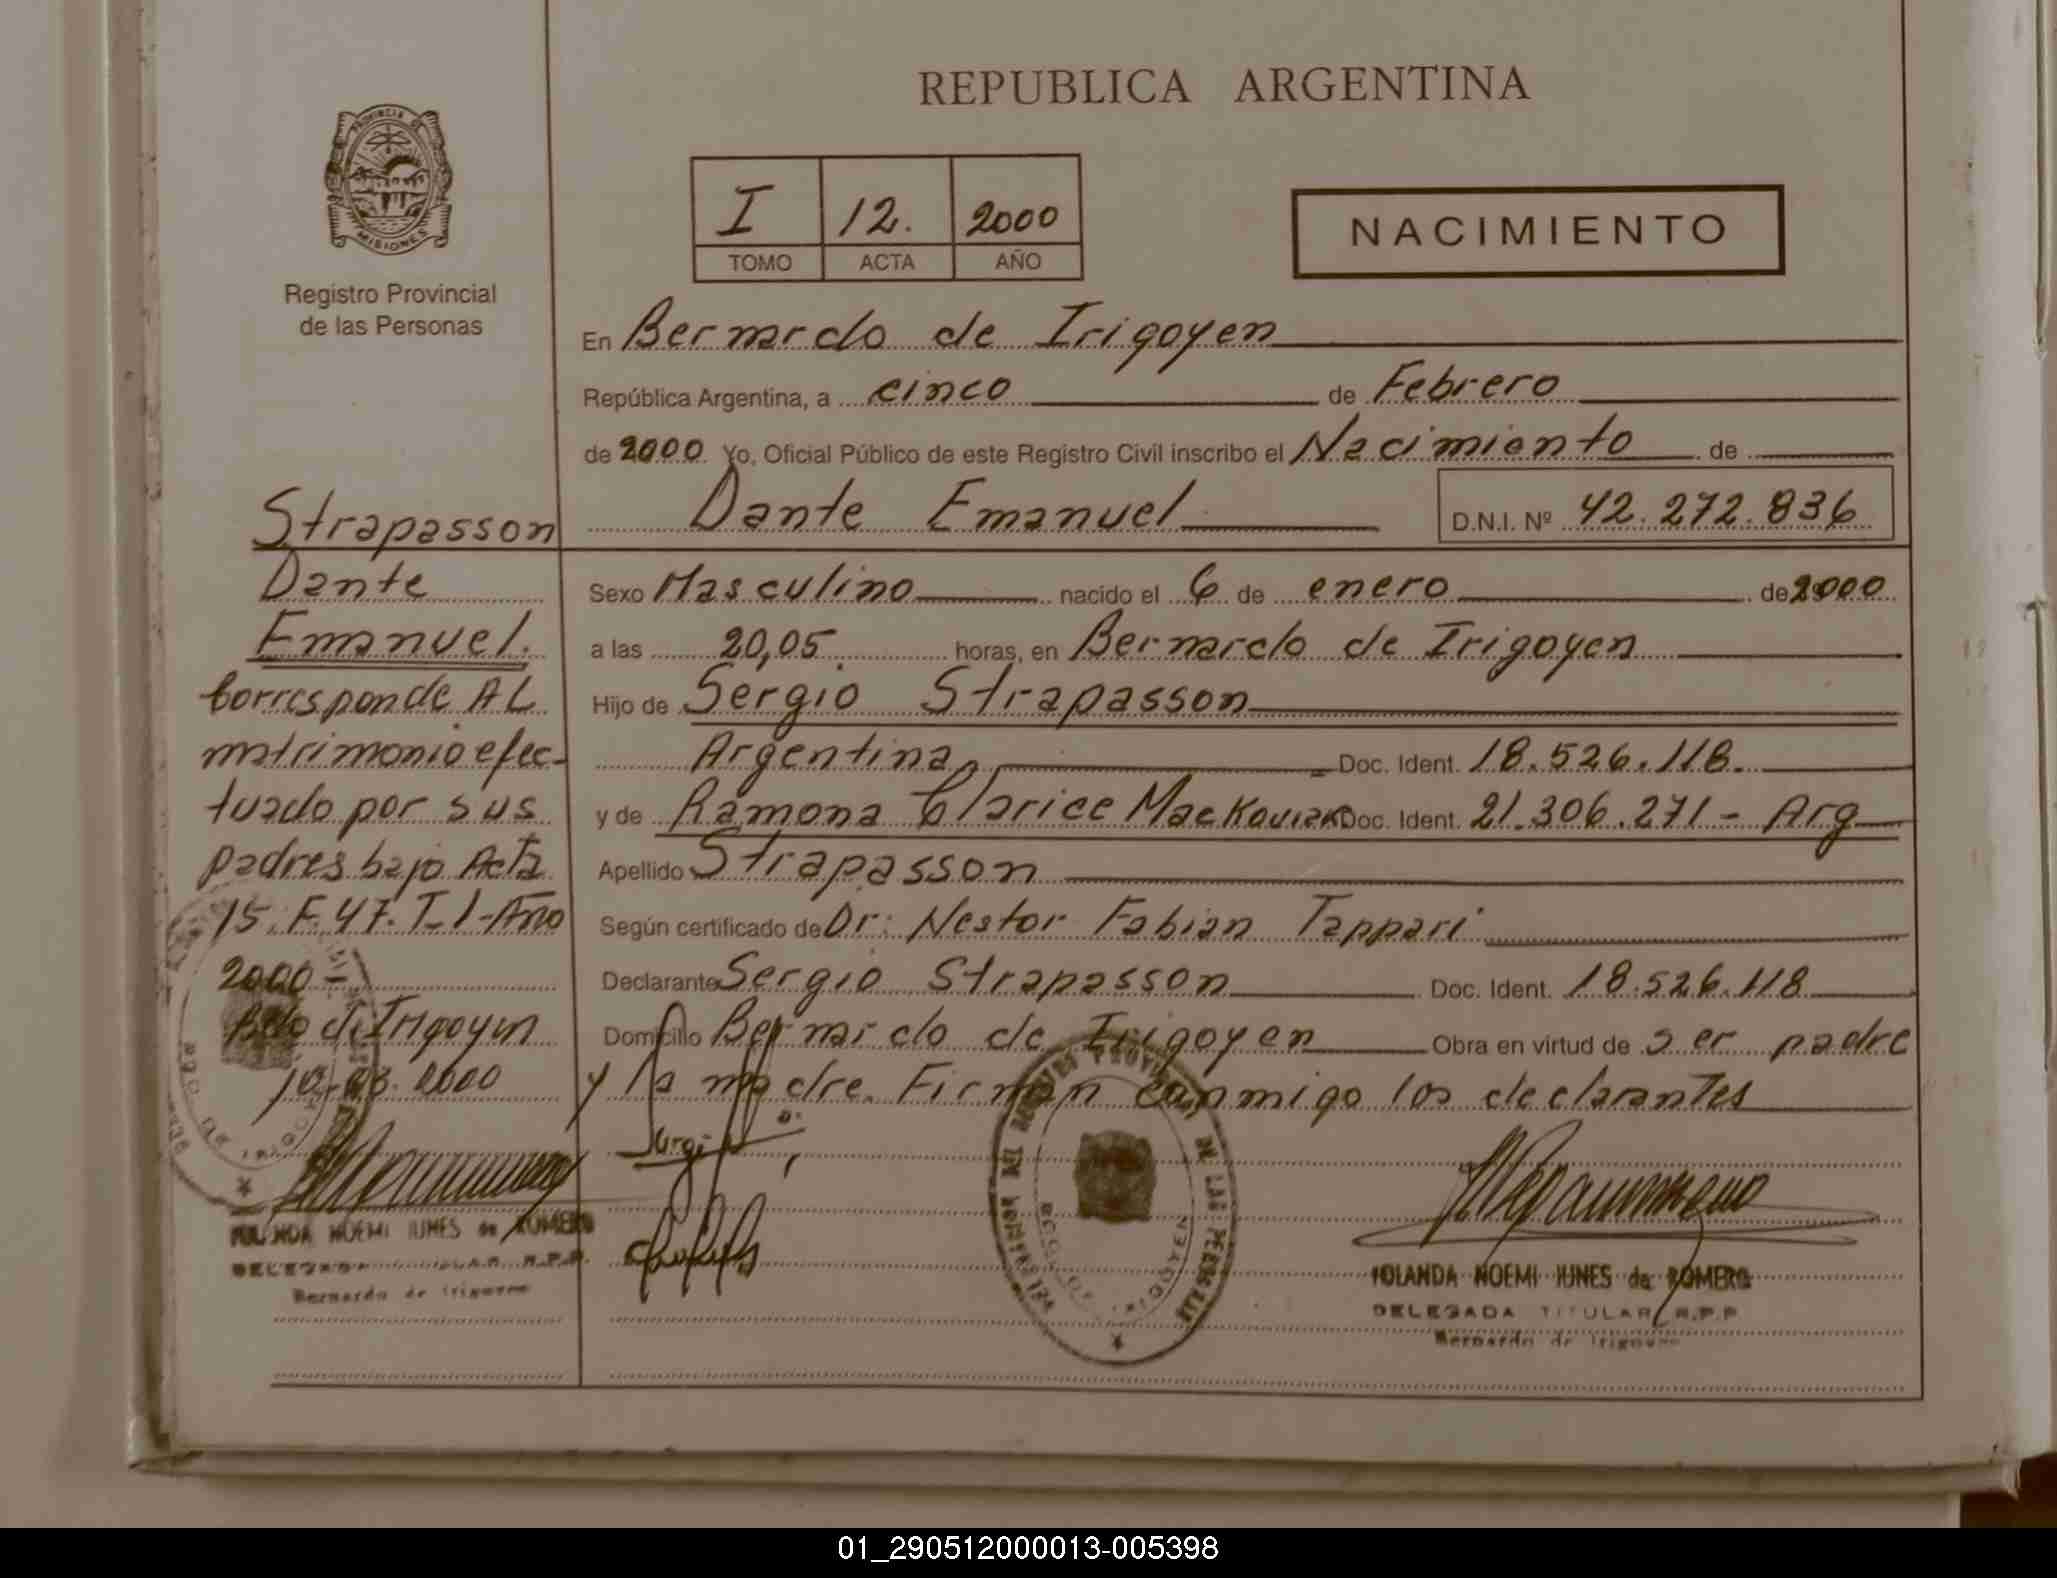 REPUBLICA ARGENTINA
PROVINCIA DE
MISIONES
Registro Provincial
de las Personas
I 12. 2000
TOMO ACTA AÑO
NACIMIENTO
En Bernardo de Irigoyen
República Argentina, a cinco de Febrero
de 2000 Yo, Oficial Público de este Registro Civil inscribo el Nacimiento de
Dante Emanuel D.N.I. Nº 42.272.836
Strapasson
Dante
Emanuel.
Corresponde AL
matrimonio efec-
tuado por sus
padres bajo Acta
15. F. 47. T-1-Año
2000-
Bdo de Irigoyen
10-03-2000
YOLANDA NOEMI IUNES de ROMERO
DELEGADA TITULAR R.P.P.
Bernardo de Irigoyen
Sexo Masculino nacido el 6 de enero de 2000
a las 20,05. horas, en Bernardo de Irigoyen
Hijo de Sergio Strapasson
Argentina Doc. Ident. 18.526.118.
y de Ramona Clarice Doc. Ident. 21.306.271- Arg
Apellido Strapasson
Según certificado de Dr: Nestor Fabian Tappari
Declarante Sergio Strapasson Doc. Ident. 18.526.118
Domicilio Bernardo de Irigoyen Obra en virtud de ser padre
y la madre. Firman conmigo los declarantes
YOLANDA NOEMI IUNES de ROMERO
DELEGADA TITULAR R.P.P
Bernardo de Irigoyen
01_290512000013-005398